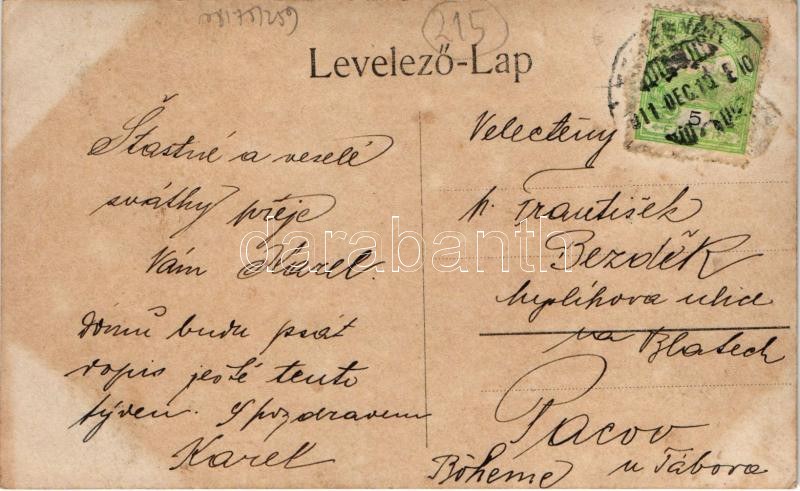 215
Levelező-Lap
911 DEC. 19
5
Šťastné a veselé
svátky přeje
Vám Karel.
Domů budu psát
dopis ještě tento
týden. S pozdravem
Karel
Velectěný
p. František
Bezděk
ulice
na Blatech
Pacov
u Tábora
Böheme
darabanth